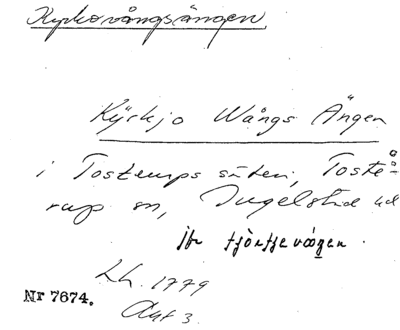 Kyrkovångsängen
Kÿrkjo Wångs Ängen
i Tosterups säteri, Toste-
rup sn, Ingelstad hd
jfr
Lh. 1779
Akt 3.
Nr 7674.